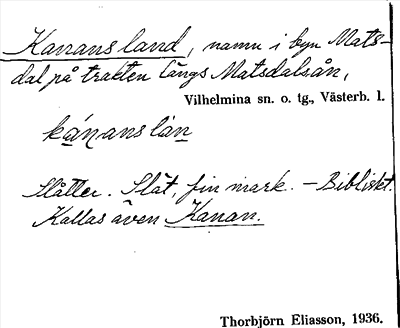 Kanans land, namn i byn Mats-
dal på trakten längs Matsdalsån,
Vilhelmina sn. o. tg., Västerb. l.
kánans lan
Slåtter. Slät, fin mark. – Bibliskt.
Kallas även Kanan.
Thorbjörn Eliasson, 1936.